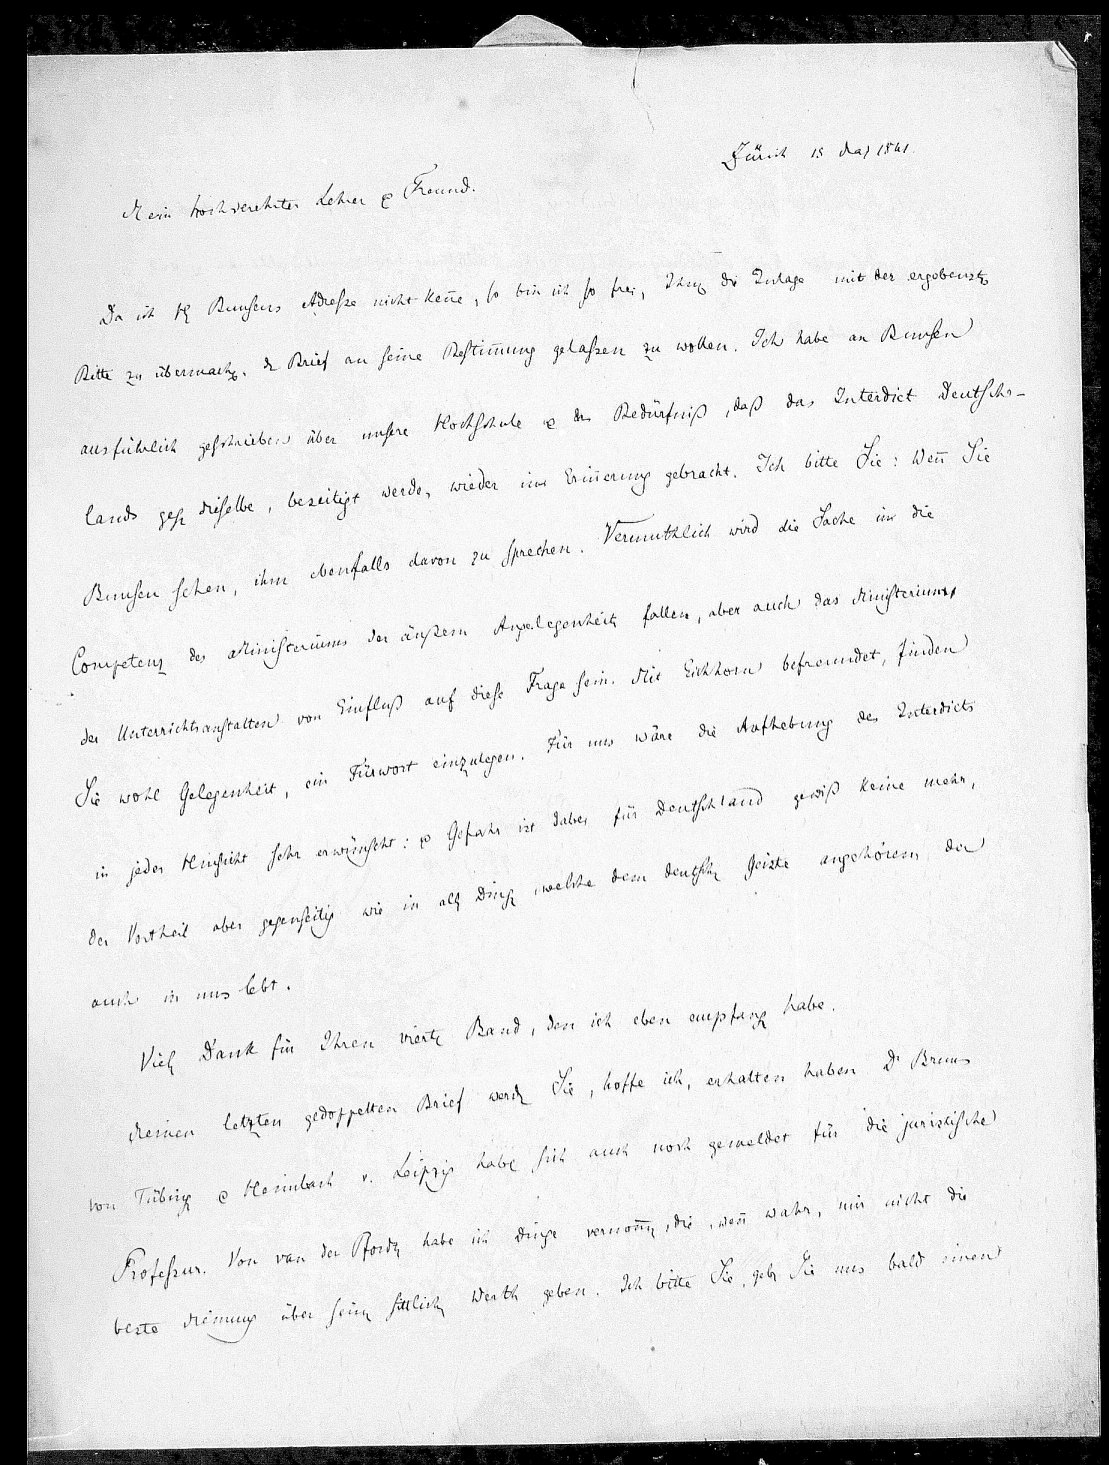 Zürich 15 May 1841.
Mein hochverehrter Lehrer & Freund.
Da ich H Bunsens Adreße nicht kenne, so bin ich so frei, Ihnen die Inlage mit der ergebensten
Bitte zu übermachen, den Brief an seine Bestimmung gelaßen zu wollen. Ich habe an Bunsen
ausführlich geschrieben über unsere Hochschule & das Bedürfniß, daß das Interdict Deutsch-
lands gegen dieselbe, beseitigt werde, wieder in Erinnerung gebracht. Ich bitte Sie: Wenn Sie
Bunsen sehen, ihm ebenfalls davon zu sprechen. Vermuthlich wird die Sache in die
Competenz des Ministeriums der äußern Angelegenheiten fallen, aber auch das Ministerium
der Unterrichtsanstalten von Einfluß auf diese Frage sein. Mit Eichhorn befreundet, finden
Sie wohl Gelegenheit, ein Fürwort einzulegen. Für uns wäre die Aufhebung des Interdicts
in jeder Hinsicht sehr erwünscht: & Gefahr ist dabei für Deutschland gewiß keine mehr,
der Vortheil aber gegenseitig wie in allen Dingen, welche dem deutschen Geiste angehören, der
auch in uns lebt.
Vielen Dank für Ihren vierten Band, den ich eben empfangen habe.
Meinen letzten gedoppelten Brief werden Sie, hoffe ich, erhalten haben. Dr Bruns
von Tübingen & Heimbach v. Leipzig haben sich auch noch gemeldet für die juristische
Profeßur. Von van der Pfordten habe ich Dinge vernommen, die, wenn wahr, mir nicht die
beste Meinung über seinen sittlichen Werth geben. Ich bitte Sie, geben Sie uns bald einen